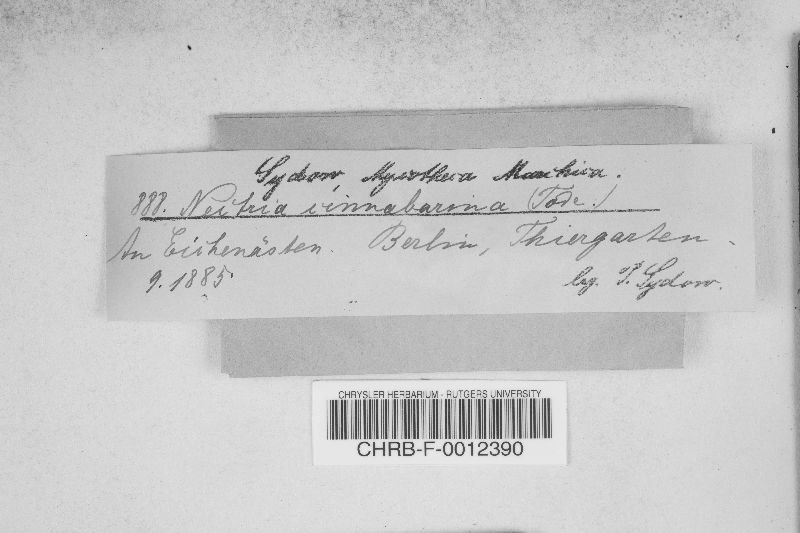 Sydow Mycotheca Marchica.
888. Nectria cinnabarina (Tode.)
An Eichenästen. Berlin, Thiergarten.
9. 1885
leg. P. Sydow.
CHRYSLER HERBARIUM - RUTGERS UNIVERSITY
CHRB-F-0012390